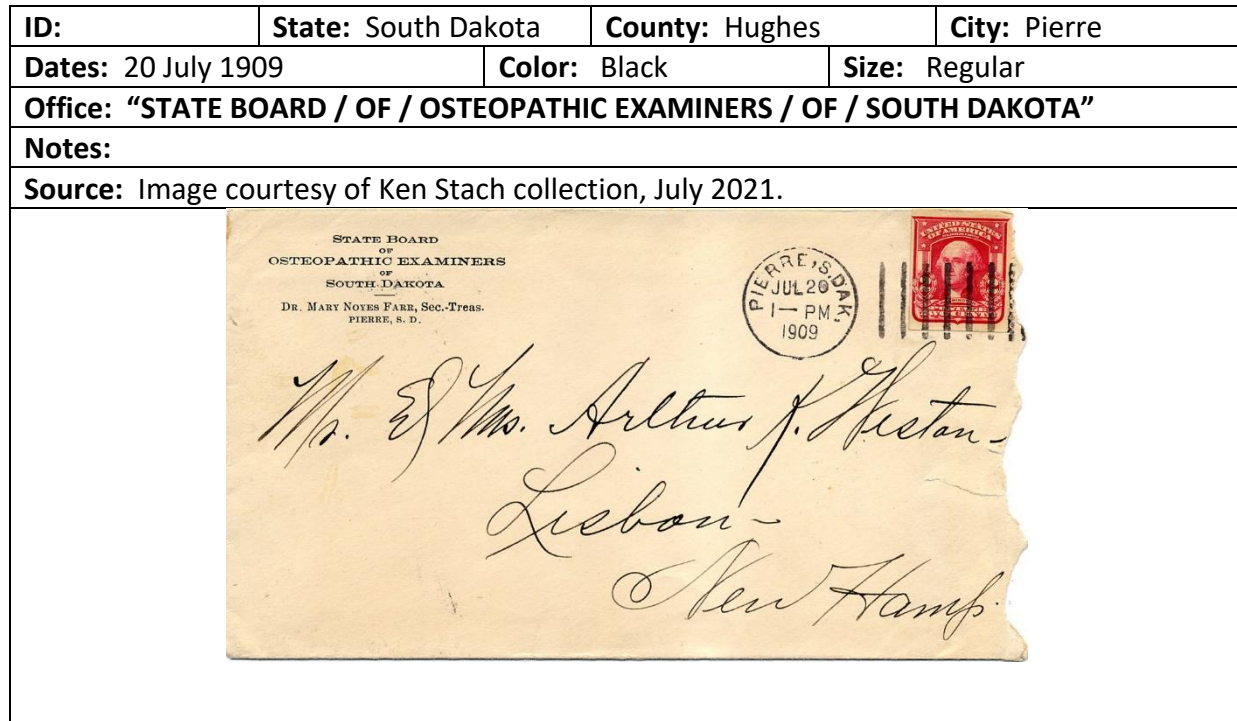 ID: State: South Dakota County: Hughes City: Pierre
Dates: 20 July 1909 Color: Black Size: Regular
Office: “STATE BOARD / OF / OSTEOPATHIC EXAMINERS / OF / SOUTH DAKOTA”
Notes:
Source: Image courtesy of Ken Stach collection, July 2021.
STATE BOARD
OF
OSTEOPATHIC EXAMINERS
OF
SOUTH DAKOTA
DR. MARY NOYES FARR, Sec.-Treas.
PIERRE, S. D.
PIERRE, S.DAK.
JUL 20
1 — PM
1909
UNITED STATES
OF AMERICA
Mr. & Mrs. Arthur K. Weston-
Lisbon-
New Hamp.